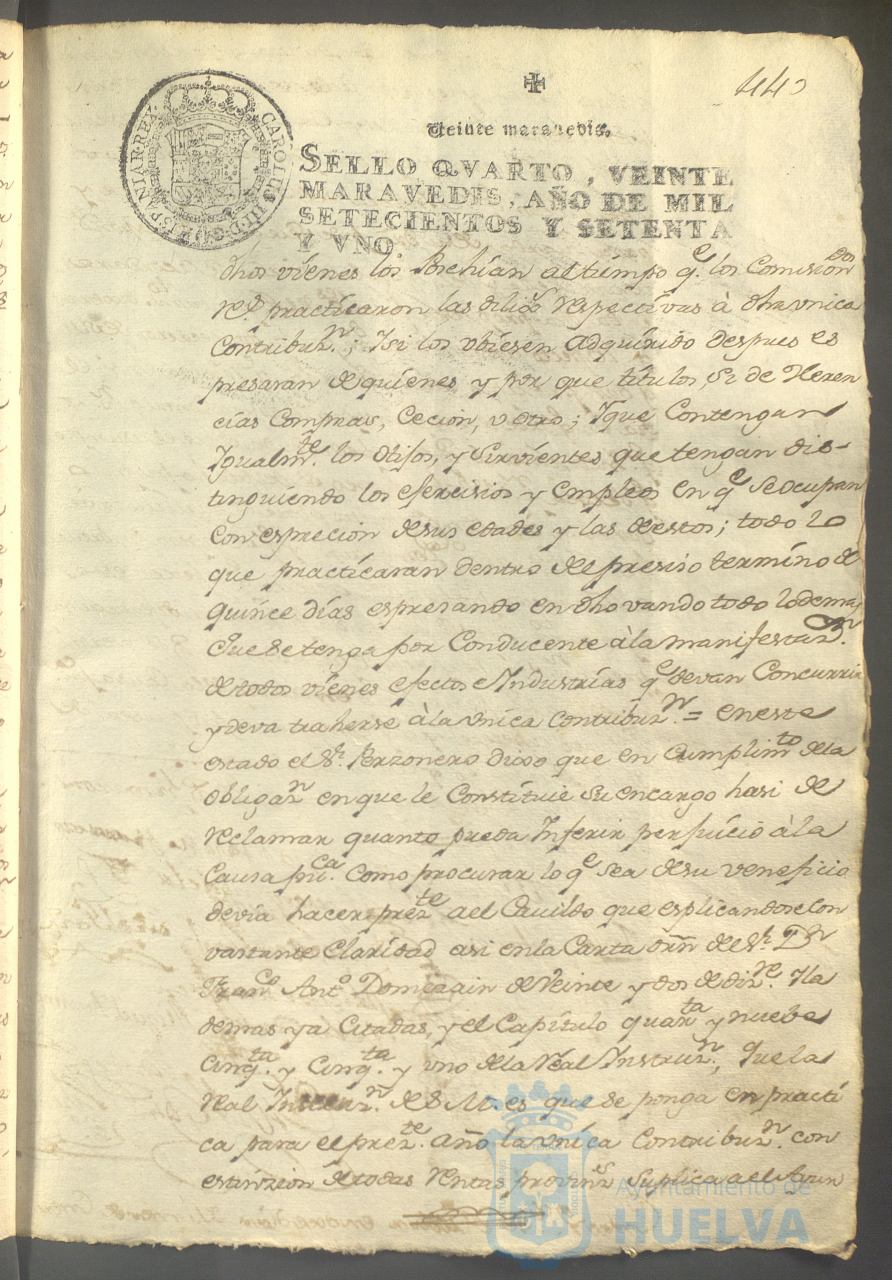 443
Veinte maravedis.
SELLO QVARTO, VEINTE
MARAVEDIS, AÑO DE MIL
SETECIENTOS Y SETENTA
Y VNO
CAROLUS III D G HISPANIAR REX
dhos vienes los Posehían al tiempo qe. los Comision
dos
practicaron las diligs respectivas à dha vnica
Contribuzn.; Isi los vbiesen adquirido despues es
presaran de quienes y por que titulos, si de Heren
cias Compras, Cecion, v otro; Yque Contengan
Igualmte. los Hijos, y Sirvientes que tengan dis-
tinguiendo los efercisios y empleos en qe se ocupan
con espreción de sus edades y las de estos; todo lo
que practicaran dentro del presiso termino de
quince días espresando en dho vando todo lo demas
que se tenga por Conducente à la manifestazn.
de todos vienes efectos e Industrias qe devan Concurrir
y deva traherse à la vnica Contribuzn. = en este
estado el Sr. Perzonero dixo que en Cumplimto de la
obligazn en que le Constituie su encargo hasi de
reclamar quanto pueda Inferir perjuicio à la
Causa puca. Como procurar lo qe sea de su veneficio
devia hacer prezte a el Cavildo que esplicandose con
vastante Claridad asi en la Carta orn del Sr. Dn
Franco. Anto. Domezain de Veinte y dos de dizre. Y la
demas ya Citadas, y el Capitulo quarta y nueve
Cinqta. y Cinqta. y uno de la Real Instruzn., que la
Real Intenzn. de S. M. es que se ponga en practi
ca para el prezte. año la vnica Contribuzn. con
estinzion de todas rentas provins suplica a el Ayun
Ayuntamiento de
HUELVA